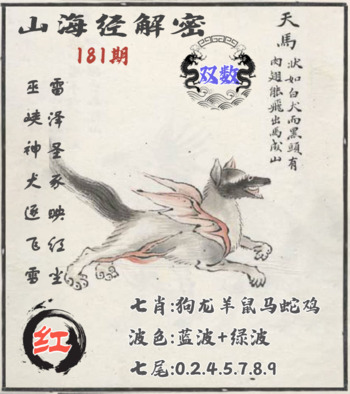 山海经解密
181期
双数
天馬
狀如白犬而黑頭有
肉翅能飛出馬成山
雷泽圣豕映红尘
巫峡神犬逐飞雪
红
七肖:狗龙羊鼠马蛇鸡
波色:蓝波+绿波
七尾:0.2.4.5.7.8.9